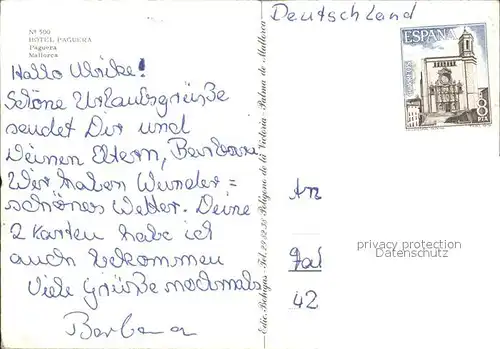 Nº 500
HOTEL PAGUERA
Paguera
Mallorca
Hallo Ulrike!
Schöne Urlaubsgrüße
sendet Dir und
Deinen Eltern, Barbara
Wir haben Wunder=
schönes Wetter. Deine
2 Karten habe ich
auch bekommen
Viele Grüße nochmals
Barbara
Edic. Bohigas - Tel. Polígono de la Victoria - Palma de Mallorca
Deutschland
ESPAÑA
CORREOS
8 PTA
An
privacy protection
Datenschutz
42